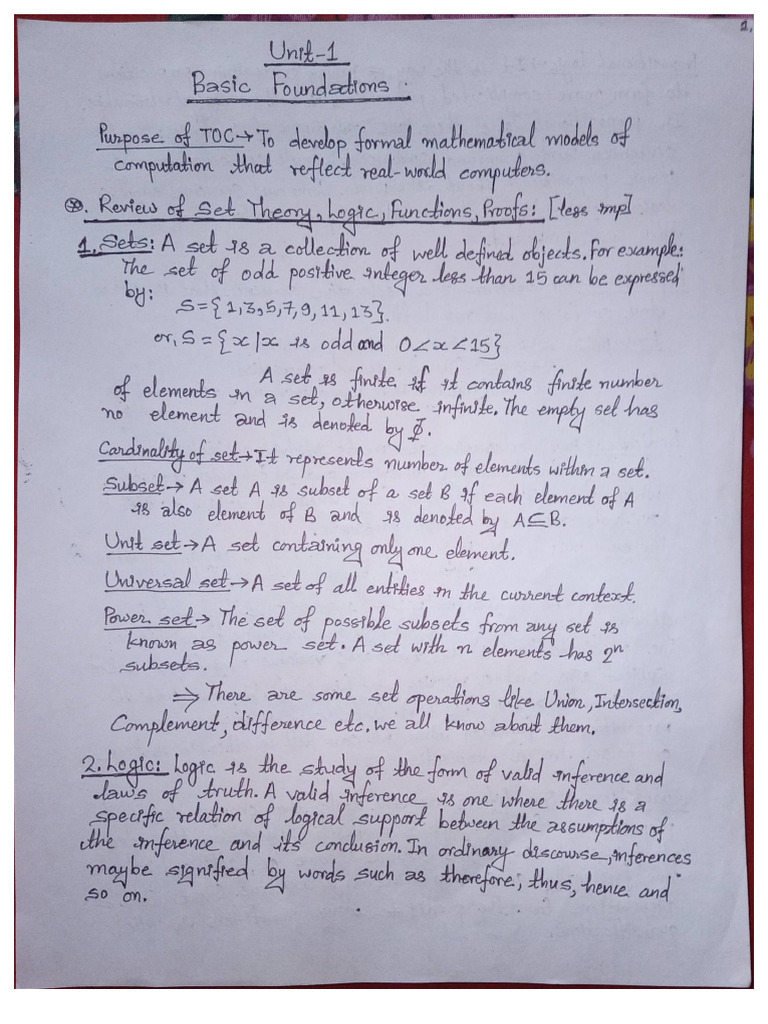 1.
Unit-1
Basic Foundations.
Purpose of TOC→ To develop formal mathematical models of
computation that reflect real-world computers.
⊛. Review of Set Theory, Logic, Functions, Proofs: [less imp]
1. Sets: A set is a collection of well defined objects. For example:
The set of odd positive integer less than 15 can be expressed
by:
S={1,3,5,7,9,11,13}.
or, S = {x|x is odd and 0<x<15}
A set is finite if it contains finite number
of elements in a set, otherwise infinite. The empty set has
no element and is denoted by ϕ.
Cardinality of set→ It represents number of elements within a set.
Subset→ A set A is subset of a set B if each element of A
is also element of B and is denoted by A⊆B.
Unit set→ A set containing only one element.
Universal set→ A set of all entities in the current context.
Power set→ The set of possible subsets from any set is
known as power set. A set with n elements has 2ⁿ
subsets.
⇒ There are some set operations like Union, Intersection,
Complement, difference etc. we all know about them.
2. Logic: Logic is the study of the form of valid inference and
laws of truth. A valid inference is one where there is a
specific relation of logical support between the assumptions of
the inference and its conclusion. In ordinary discourse, inferences
maybe signified by words such as therefore, thus, hence and
so on.